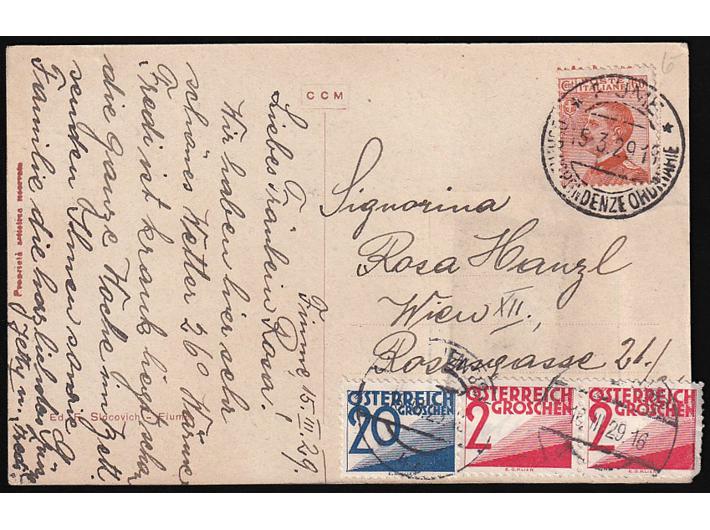 CCM
Fiume, 15. III. 29.
Liebes Fräulein Rosa.
Wir haben hier sehr
schönes Wetter 26° Wärme
Fredi ist krank liegt aber
die ganze Woche im Bett.
senden Ihnen sowie
Familie die herzlichsten
Jetty u. Fredi
Proprietà artistica riservata
Ed. F. Slocovich - Fiume
POSTE
ITALIANE
FIUME
15.3.29.19
CORRISPONDENZE ORDINARIE
Signorina
Rosa Hanzl
Wien XII.
21.
ÖSTERREICH
20 GROSCHEN
ÖSTERREICH
2 GROSCHEN
ÖSTERREICH
2 GROSCHEN
III 29-16